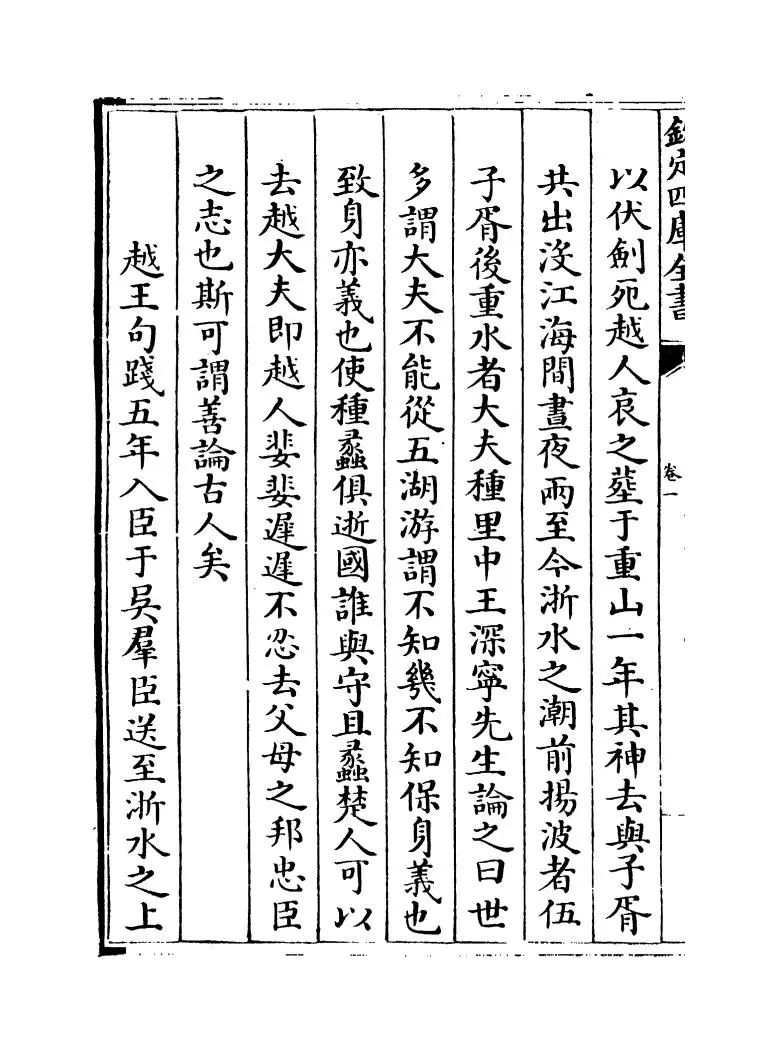 欽定四庫全書
卷一
以伏劍死越人哀之塟于重山一年其神去與子胥
共出沒江海間晝夜兩至今浙水之潮前揚波者伍
子胥後重水者大夫種里中王深寧先生論之曰世
多謂大夫不能從五湖游謂不知幾不知保身義也
致身亦義也使種蠡俱逝國誰與守且蠡楚人可以
去越大夫即越人婓婓遲遲不忍去父母之邦忠臣
之志也斯可謂善論古人矣
越王句踐五年入臣于吳羣臣送至浙水之上